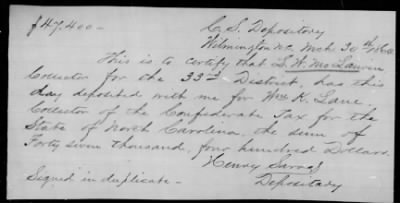 $47,400—
C. S. Depository
Wilmington N.C. Mch 30th 186
This is to certify that L. W. McLaurin
Collector for the 33rd District, has this
day deposited with me for Wm K. Lane,
Collector of the Confederate Tax for the
State of North Carolina, the sum of
Forty seven thousand, four hundred Dollars.
Henry
Signed in duplicate— Depositary